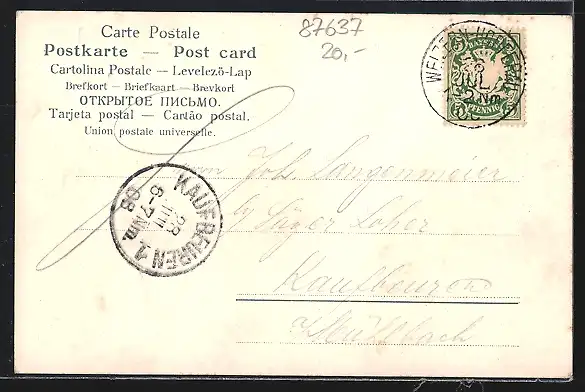 Carte Postale
Postkarte — Post card
Cartolina Postale — Levelező-Lap
Brefkort — Briefkaart — Brevkort
ОТКРЫТОЕ ПИСЬМО.
Tarjeta postal — Cartão postal.
Union postale universelle.
87637
20,-
PFENNIG
28
JUL
KAUFBEUREN 1
28
JUL
6-7 Nm.
08
Joh. Langenmeier
Jäger Loher
Kaufbeuren
Mühlbach